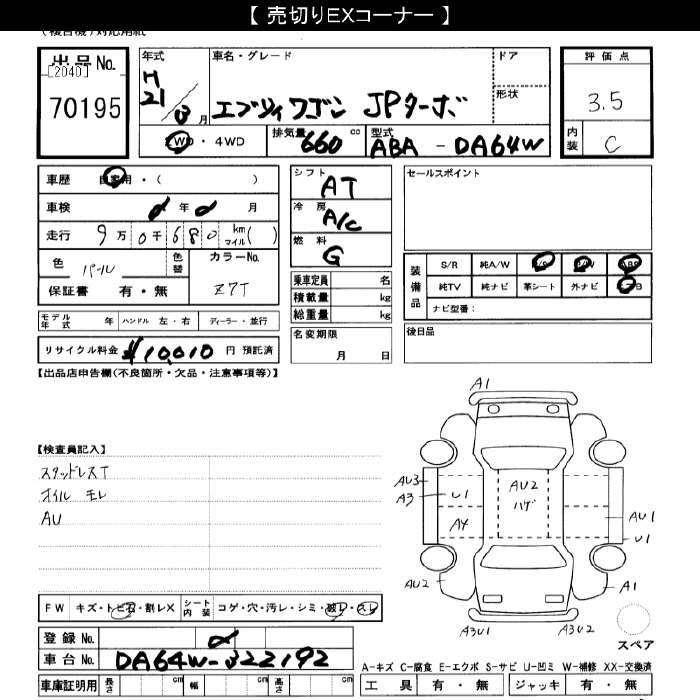 【 売切りEXコーナー 】
(複合機)対応用紙
出品No.
[2040]
70195
年式
H
21/8月
車名・グレード
エブリィワゴン JPターボ
ドア
形状
2WD・4WD
排気量
660 cc
型式
ABA - DA64W
評価点
3.5
内装
C
車歴 自家用・( )
車検 年 月
走行 9万0千680 km マイル( )
色 パール
色替
カラーNo.
Z7T
保証書 有・無
シフト
AT
冷房
A/C
燃料
G
乗車定員 名
積載量 kg
総重量 kg
名変期限
月 日
セールスポイント
装備品
S/R 純A/W P/S P/W ABS
純TV 純ナビ 革シート 外ナビ エアB
ナビ型番：
後日品
モデル年式 年 ハンドル 左・右 ディーラー・並行
リサイクル料金 ¥10,010 円 預託済
【出品店申告欄(不良箇所・欠品・注意事項等)】
【検査員記入】
スタッドレスT
オイル モレ
AU
A1
AU3
A3
U1
A4
AU2
ハゲ
AU1
U1
AU2
A1
A3U1
A3U2
スペア
FW キズ・トビ石・割レX
シート内装 コゲ・穴・汚レ・シミ・破レ・スレ
登録No.
車台No. DA64W-322192
車庫証明用 長さ cm 幅 cm 高さ cm
A-キズ C-腐食 E-エクボ S-サビ U-凹ミ W-補修 XX-交換済
工具 有・無 ジャッキ 有・無